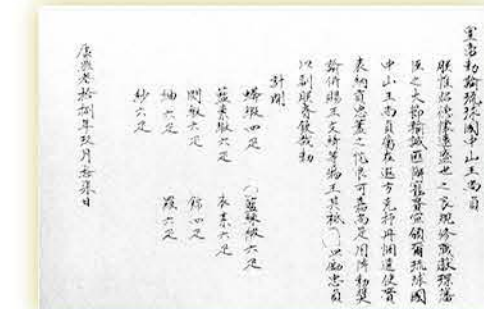 皇帝勅諭琉球國中山王尚貞
朕惟昭德懷遠盛世之良規修職獻琛藩
臣之大節輸誠匪懈寵賚宜頒爾琉球國
中山王尚貞屬在遐方克抒丹悃遣使齎
表納貢忠藎之忱良可嘉尚是用降勅奬
諭併賜王文綺等物王其祗 益勵忠貞
以副朕眷欽哉勅
計開
蟒緞四疋 藍緞六疋
藍素緞六疋 衣素六疋
閃緞六疋 錦四疋
紬六疋 羅六疋
紗六疋
康熙 拾捌年玖月 日